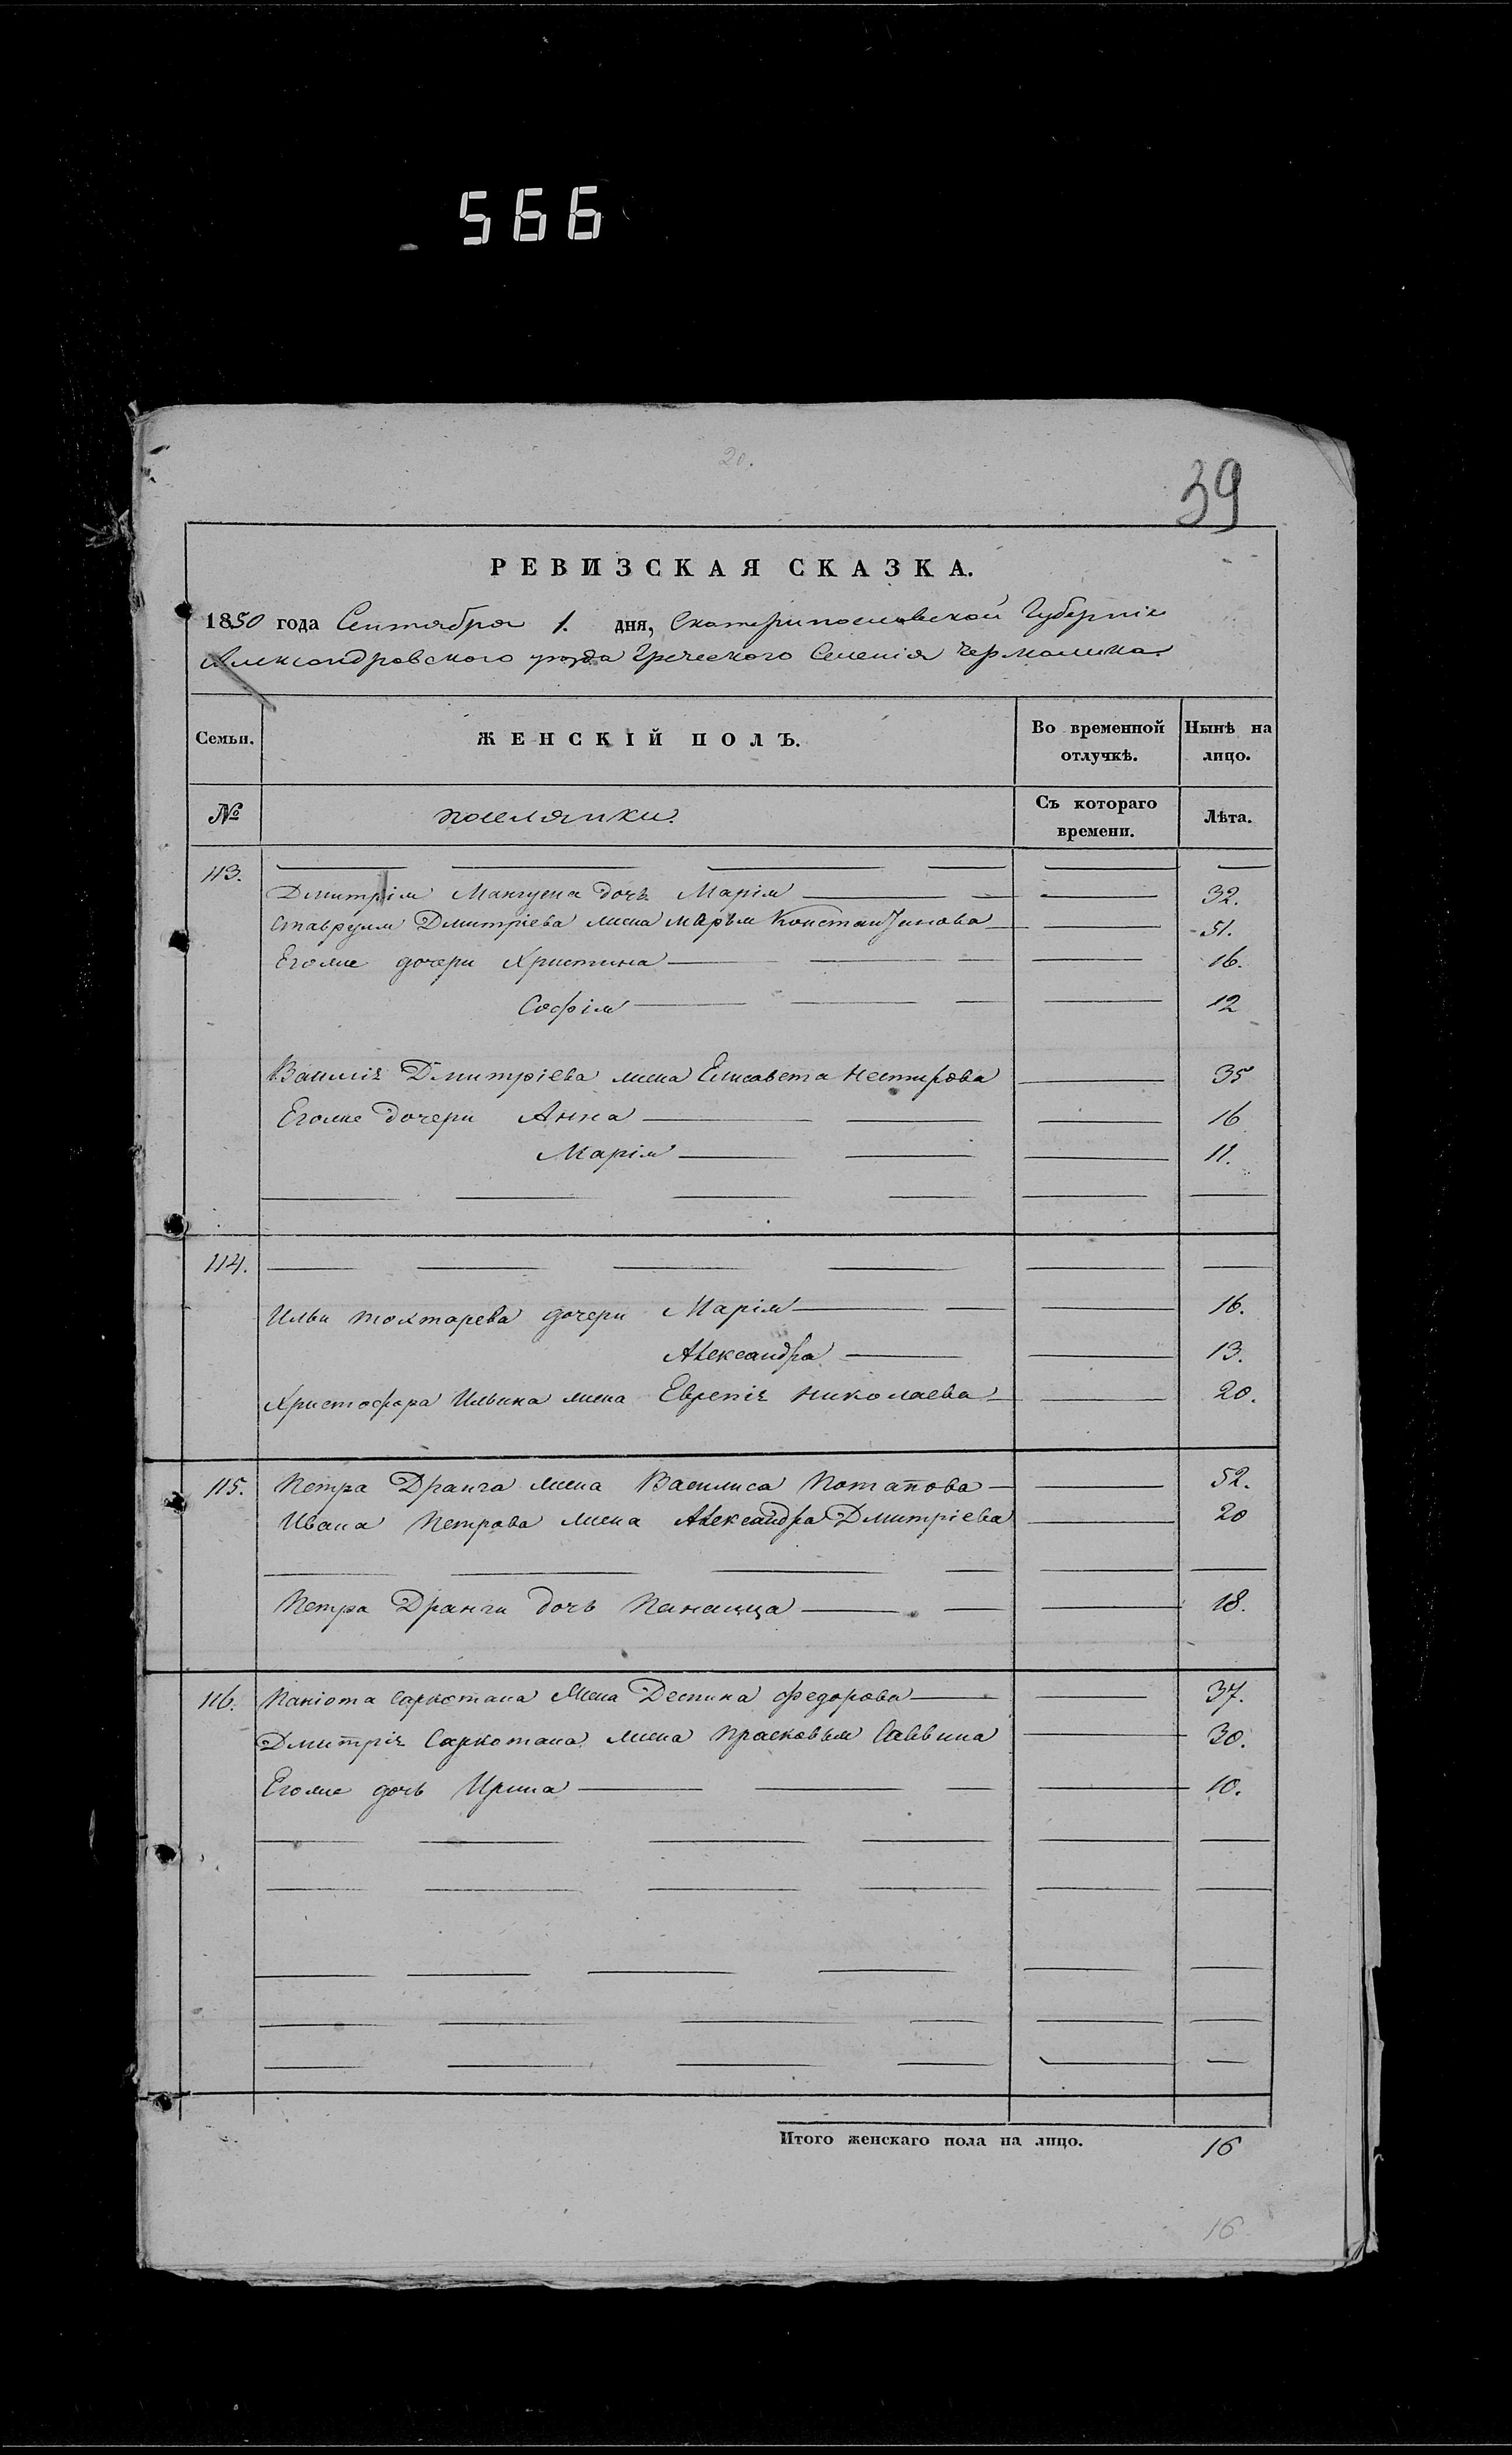 566
20.
39
РЕВИЗСКАЯ СКАЗКА.
1850 года Сентября 1. дня, Екатеринославской Губерніи
Александровскаго уезда Греческого Селенія Чермалика.
Семьи. ЖЕНСКІЙ ПОЛЪ. Во временной отлучкѣ. Нынѣ на лицо.
№ поселянки. Съ котораго времени. Лѣта.
113.
Дмитрія Мангуша дочь Марія 32.
Ставрула Дмитріева жена Марья Константинова 51.
Егоже дочери Христина 16.
Софія 12
Василія Дмитріева жена Елисавета Нестерова 35
Егоже дочери Анна 16
Марія 11.
114.
Ильи Тохтарева дочери Марія 16.
Александра 13.
Христофора Ильина жена Николаева 20.
115. Петра Дранга жена Василиса Потапова 52.
Ивана Петрова жена Александра Дмитріева 20
Петра Дранги дочь Панаица 18.
116. Паніота Саркотана жена Деспина Федорова 37.
Дмитрія Саркотана жена Прасковья Саввина 30.
Егоже дочь Ирина 10.
Итого женскаго пола на лицо. 16
16